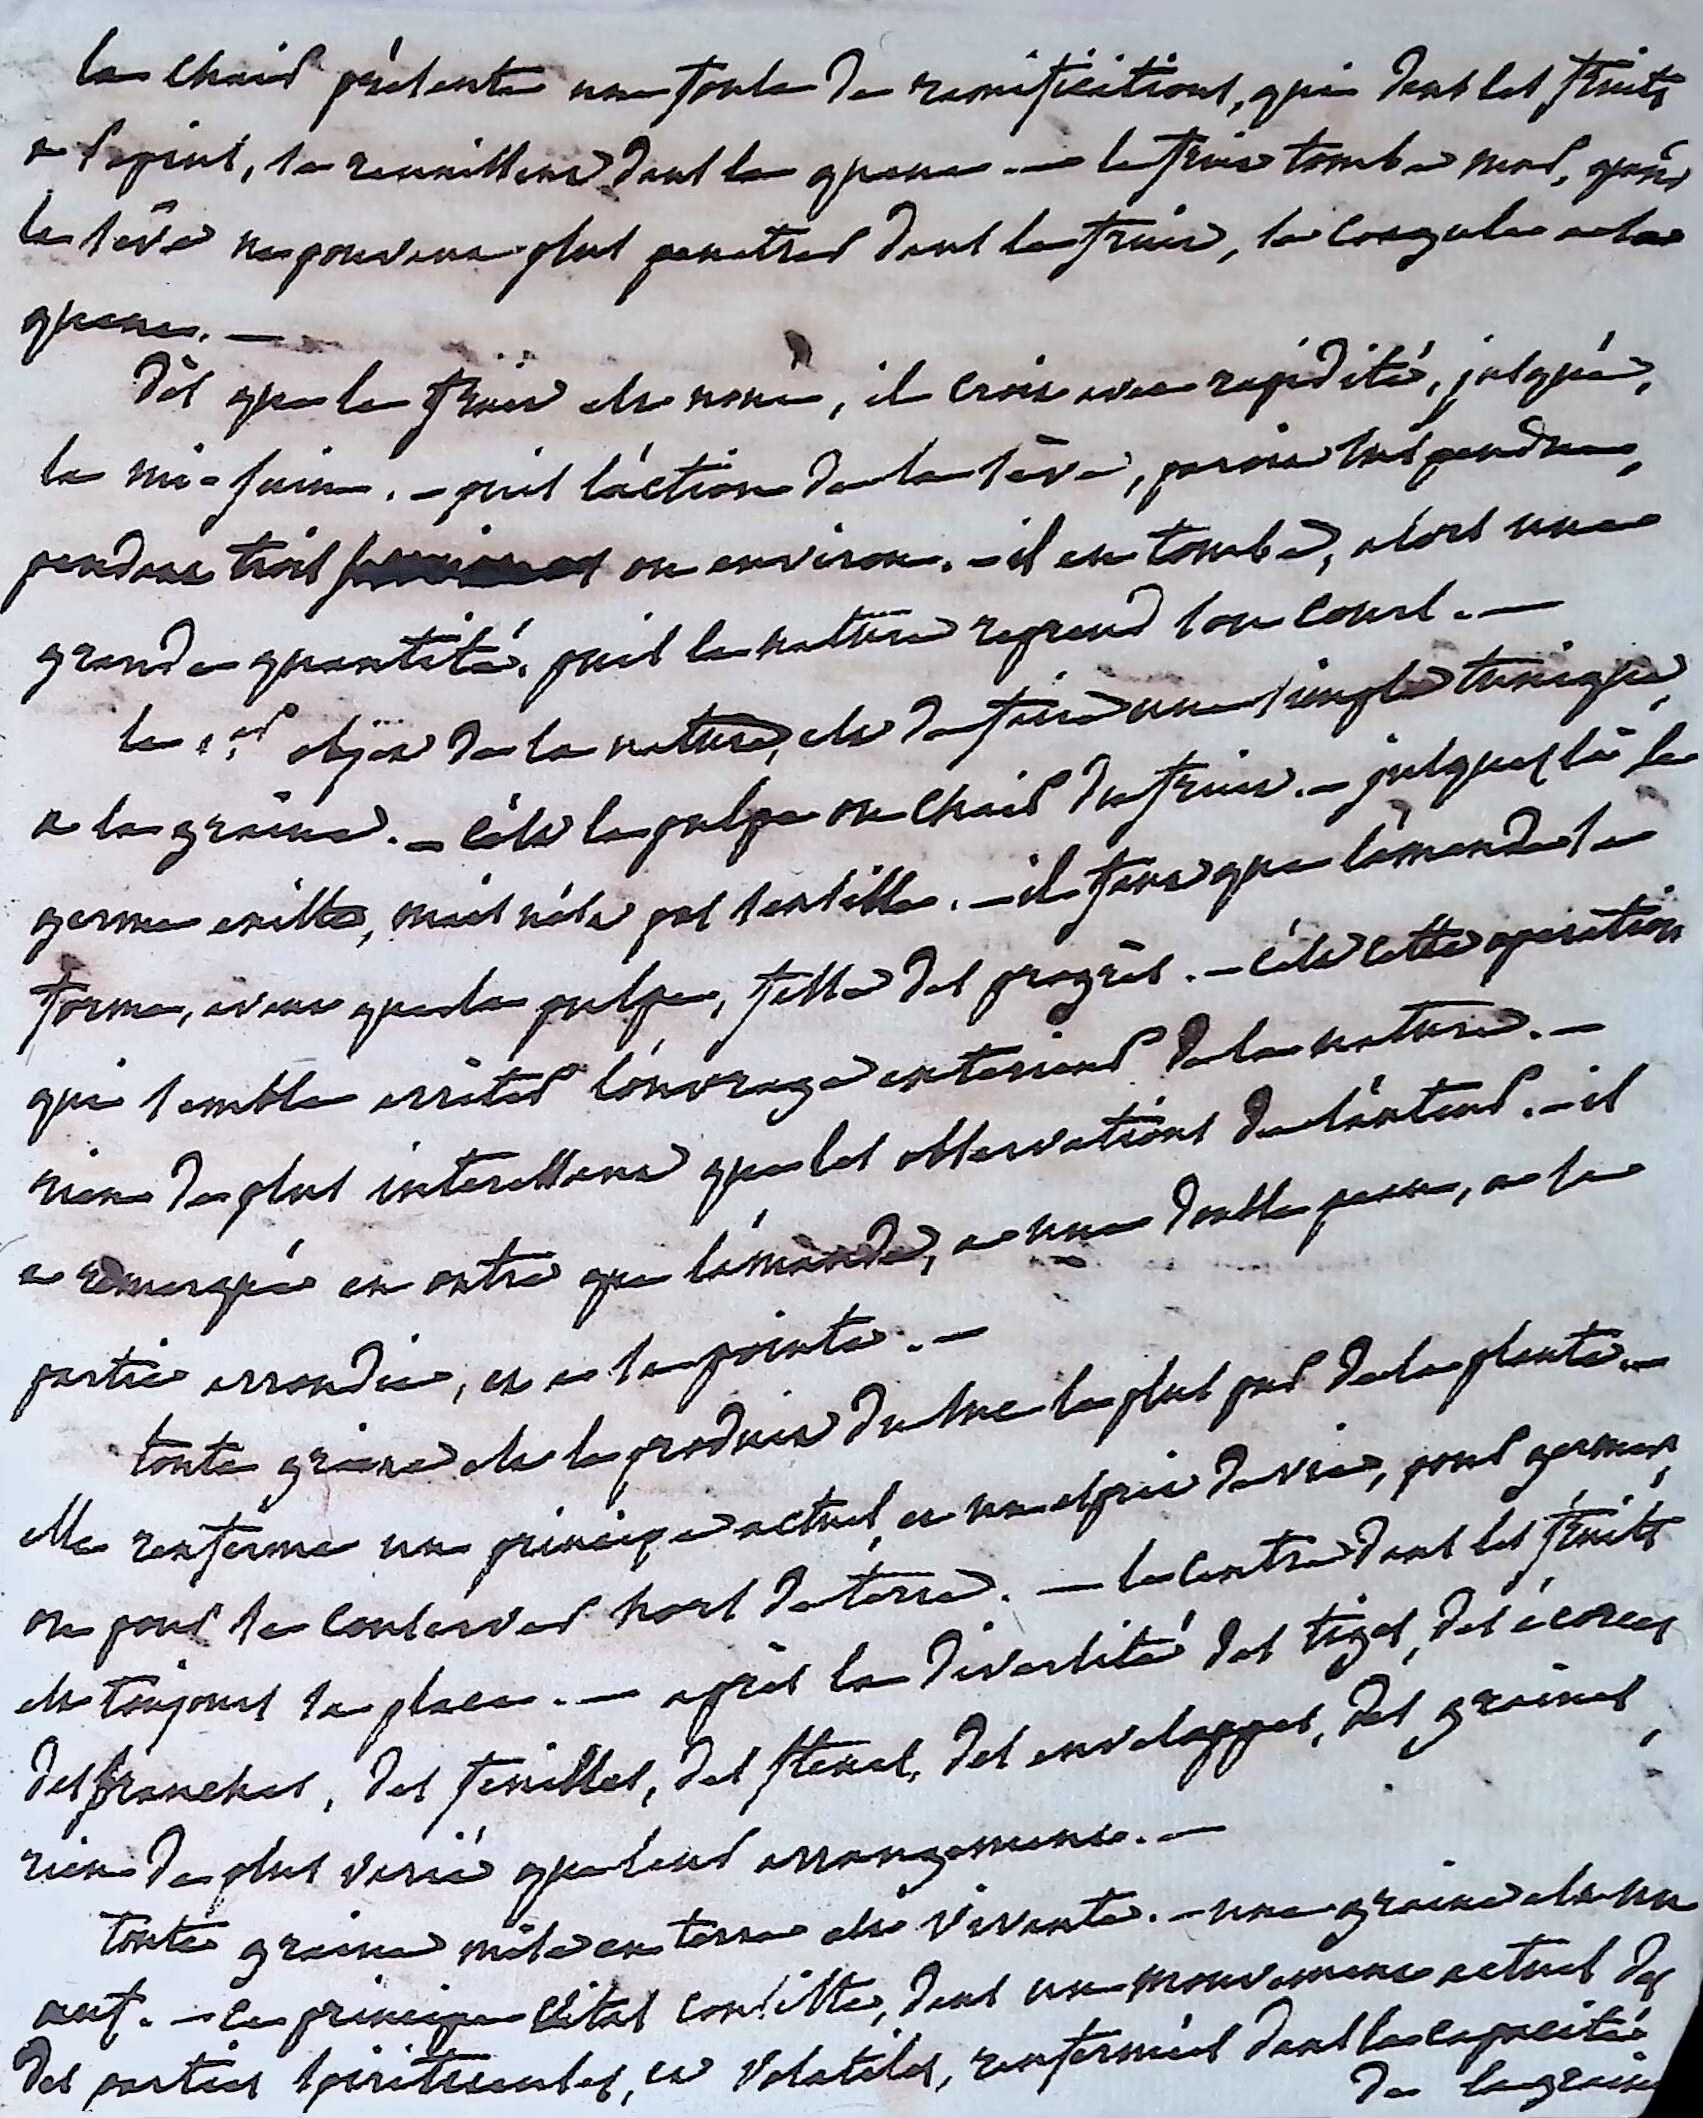 la chair présente une foule de ramifications, qui dans les fruits
a pepins, se reunissent dans la queue. — le fruit tombe mur, quand
la sève ne pouvant plus penetrer dans le fruit, se coagule a la
queue. —
dès que le fruit est noué, il croit avec rapidité, jusqu'à,
la mi-juin. — puis l'action de la sève, paroit suspendue,
pendant trois ou environ. — il en tombe, alors une
grande quantité, puis la nature reprend son cours. —
le 1.er objet de la nature, est de faire une simple tunique,
a la graine. — c'est la pulpe ou chair du fruit. — jusques là le
germe existe, mais n'est pas sensible. — il faut que l'amande se
forme, avant que la pulpe, fasse des progrès. — c'est cette operation
qui semble arrêter l'ouvrage exterieur de la nature. —
rien de plus interessant que les observations de l'auteur. — il
a remarqué en outre que l'amande, a une double peau, a sa
partie arrondie, et a sa pointe. —
toute graine est le produit du suc le plus pur de la plante. —
elle renferme un principe actuel, et un esprit de vie, pour germer,
ou pour se conserver hors de terre. — le centre dans les fruits
est toujours sa place. — après la diversité des tiges, des écorces
des branches, des feuilles, des fleurs, des enveloppes, des graines,
rien de plus varié que leur arrangement. —
toute graine mise en terre est vivante. — une graine est un
œuf. — le principe vital consiste, dans un mouvement actuel des
des parties spiritueuses, et volatiles, renfermées dans la capacité
de la graine